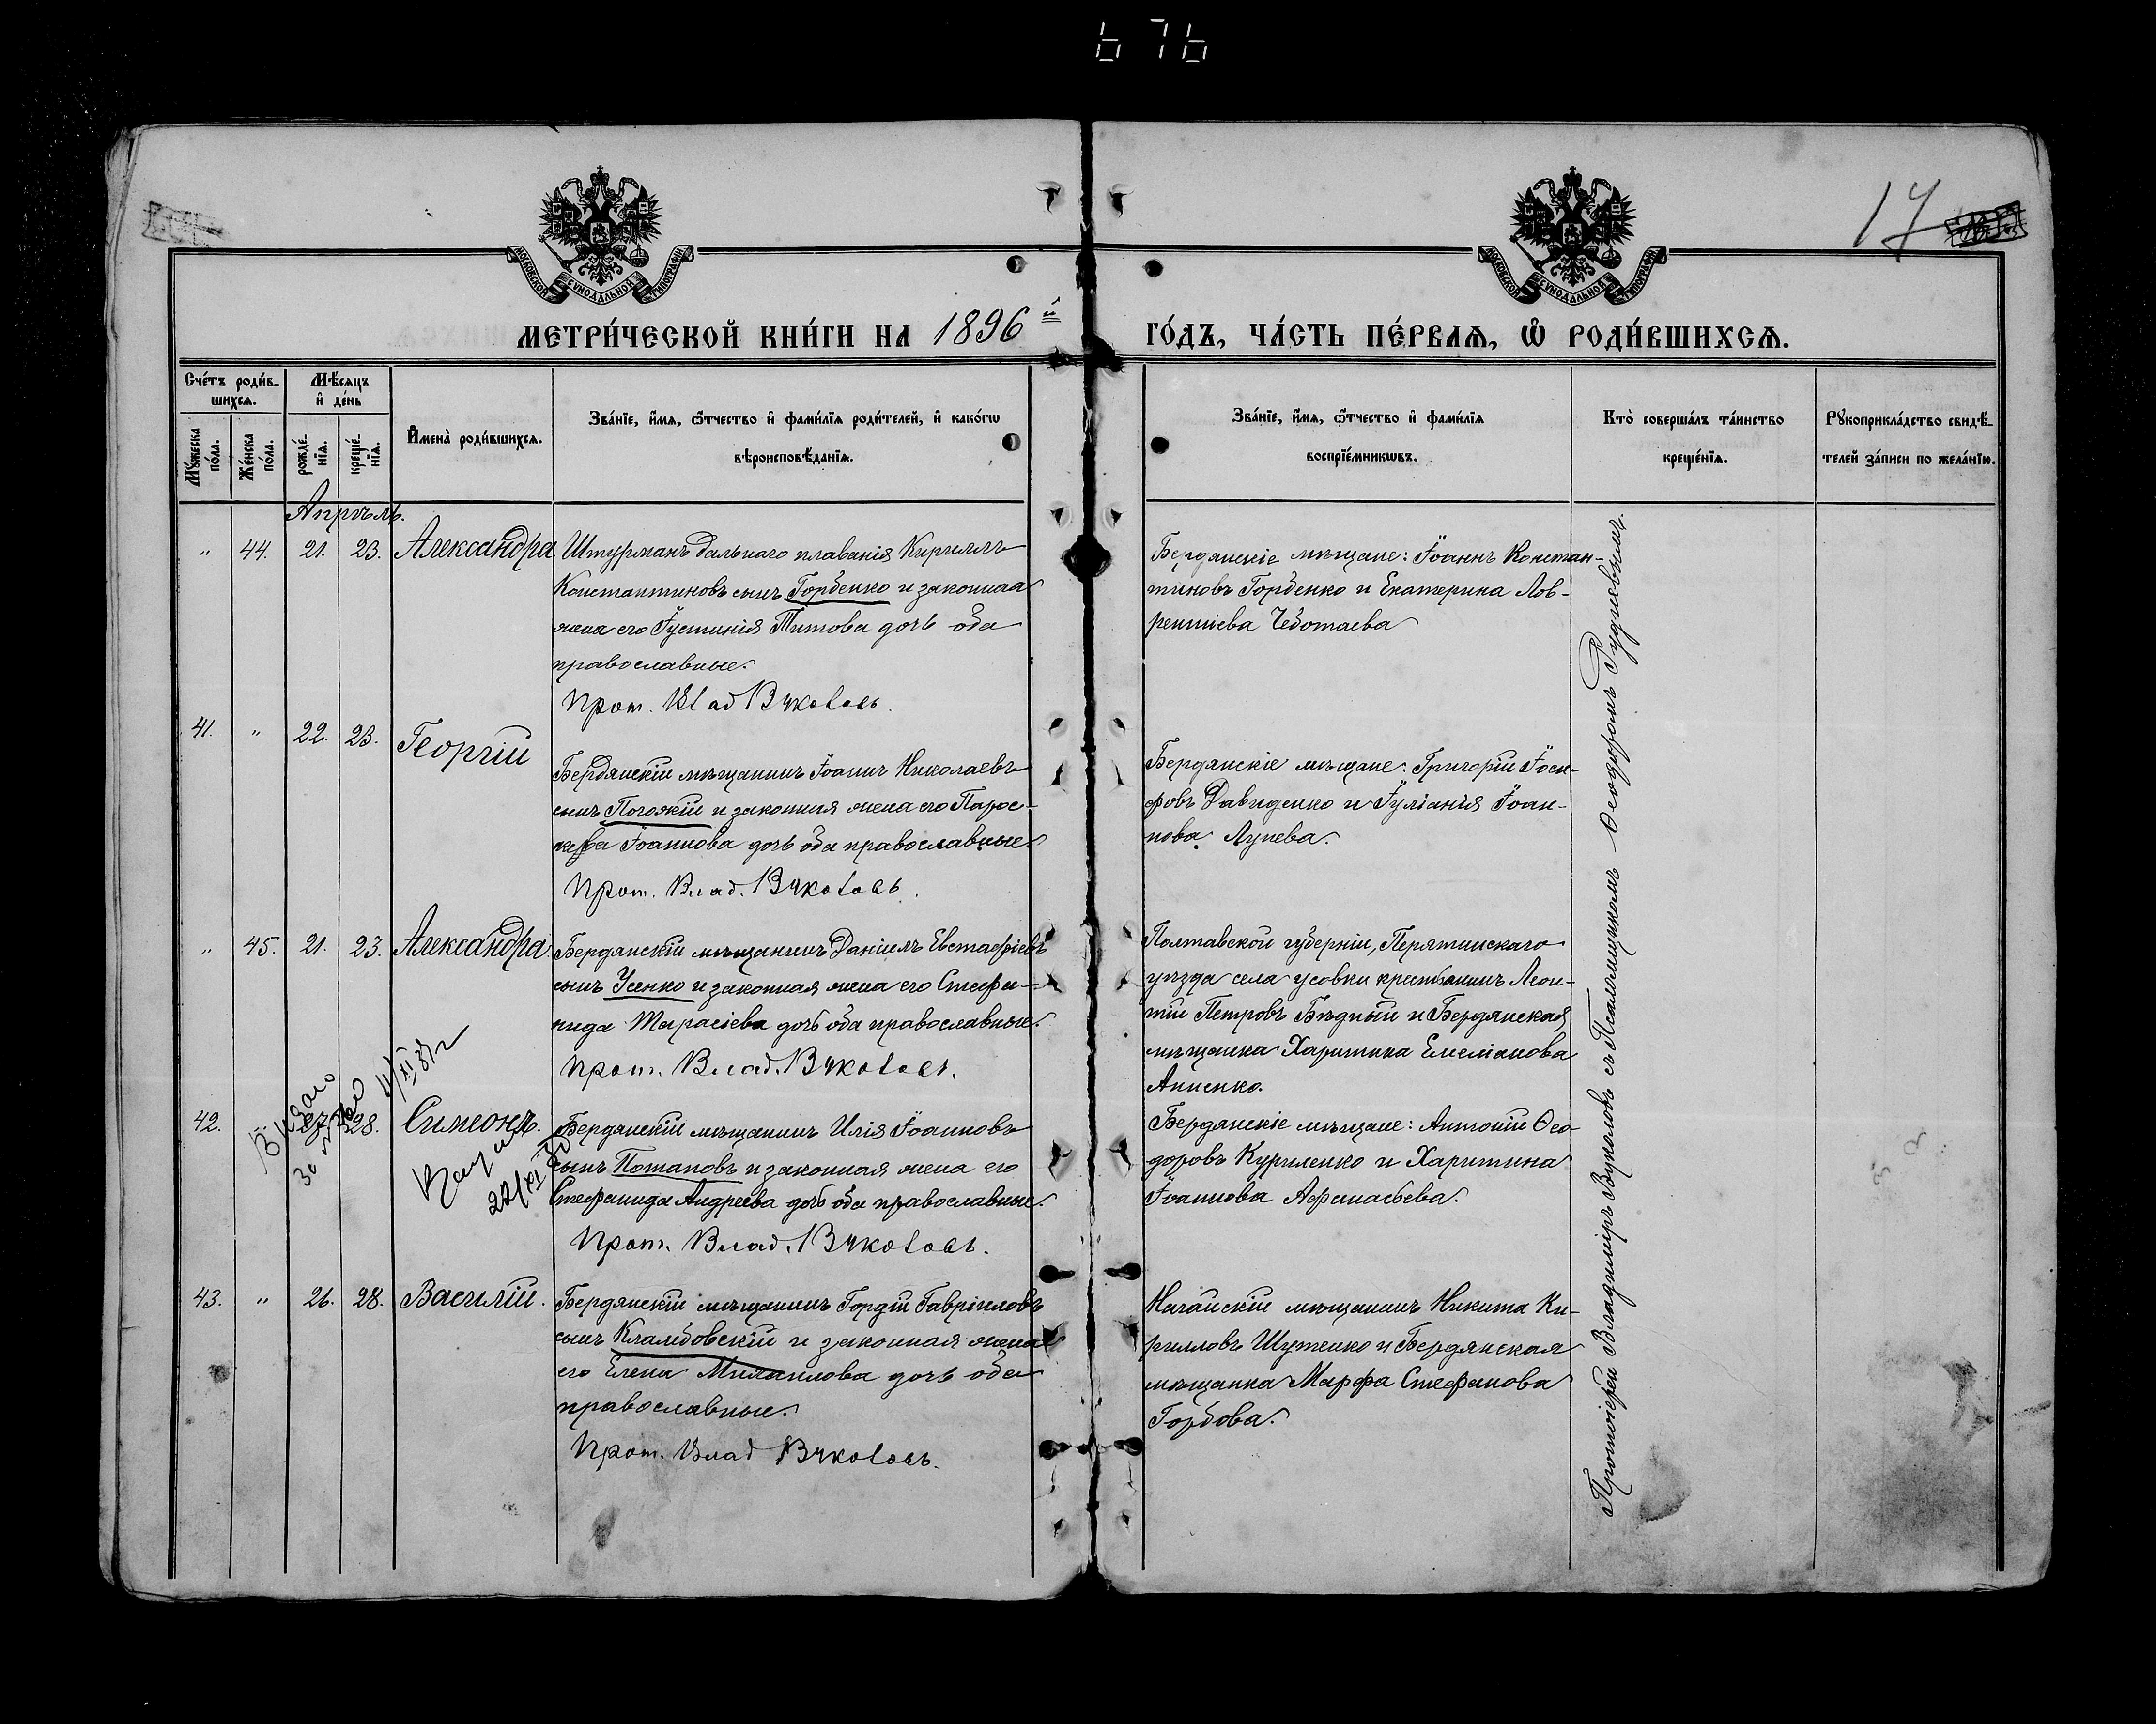 676
17
МОСКОВСКОЙ СѴНОДАЛЬНОЙ ТИПОГРАФІИ
МОСКОВСКОЙ СѴНОДАЛЬНОЙ ТИПОГРАФІИ
МЕТРИ́ЧЕСКОЙ КНИ́ГИ НА 1896й
ГО́ДЪ, ЧА́СТЬ ПЕ́РВАѦ, Ѡ҆ РОДИ́ВШИХСѦ.
Сче́тъ роди́в-
шихсѧ.
Мꙋ́жеска по́ла.
Же́нска по́ла.
Мѣ́сѧцъ
и҆ де́нь
рожде́нїѧ.
креще́нїѧ.
И҆мена̀ роди́вшихсѧ.
Зва́нїе, и҆́мѧ, ѻ҆́тчество и҆ фами́лїѧ роди́телей, и҆ како́гѡ
вѣроисповѣ́данїѧ.
Зва́нїе, и҆́мѧ, ѻ҆́тчество и҆ фами́лїѧ
воспрїе́мникѡвъ.
Кто̀ соверша́лъ та́инство
креще́нїѧ.
Рꙋкоприкла́дство свидѣ́-
телей за́писи по жела́нїю.
Апрѣль.
" 44. 21. 23. Александра
Штурманъ дальнаго плаванія Кириллъ
Константиновъ сынъ Горбенко и законная
жена его Іустинія Титова дочь оба
православные.
Прот. Влад Вуколовъ.
Бердянскіе мѣщане: Іоаннъ Констан-
тиновъ Горбенко и Екатерина Лав-
рентіева Чеботаева
41. " 22. 23. Георгій
Бердянскій мѣщанинъ Іоаннъ Николаевъ
сынъ Погожій и законная жена его Парас-
кева Іоаннова дочь оба православные.
Прот. Влад. Вуколовъ.
Бердянскіе мѣщане: Григорій Іоси-
фовъ Давиденко и Іуліанія Іоан-
нова Лунева.
" 45. 21. 23. Александра.
Бердянскій мѣщанинъ Даніилъ Евстафіевъ
сынъ Усенко и законная жена его Стефа-
нида Тарасіева дочь оба православные.
Прот. Влад. Вуколовъ.
Полтавской губерніи, Пирятинскаго
уѣзда села Усовки крестьянинъ Леон-
тій Петровъ Бѣдный и Бердянская
мѣщанка Харитина Емеліанова
Анненко.
42. 28. Симеонъ.
Бердянскій мѣщанинъ Илія Іоанновъ
сынъ Потаповъ и законная жена его
Стефанида Андреева дочь оба православные.
Прот. Влад. Вуколовъ.
Бердянскіе мѣщане: Антоній Ѳео-
доровъ Куриленко и Харитина
Іоаннова Афанасьева.
43. " 26. 28. Василій.
Бердянскій мѣщанинъ Гордій Гавріиловъ
сынъ Кламбовскій и законная жена
его Елена Михаилова дочь оба
православные.
Прот. Влад Вуколовъ.
Ногайскій мѣщанинъ Никита Ки-
рилловъ Шутенко и Бердянская
мѣщанка Марфа Стефанова
Горбова.
Протоіерей Владиміръ Вуколовъ съ Псаломщикомъ Ѳеодоромъ Рудневымъ.